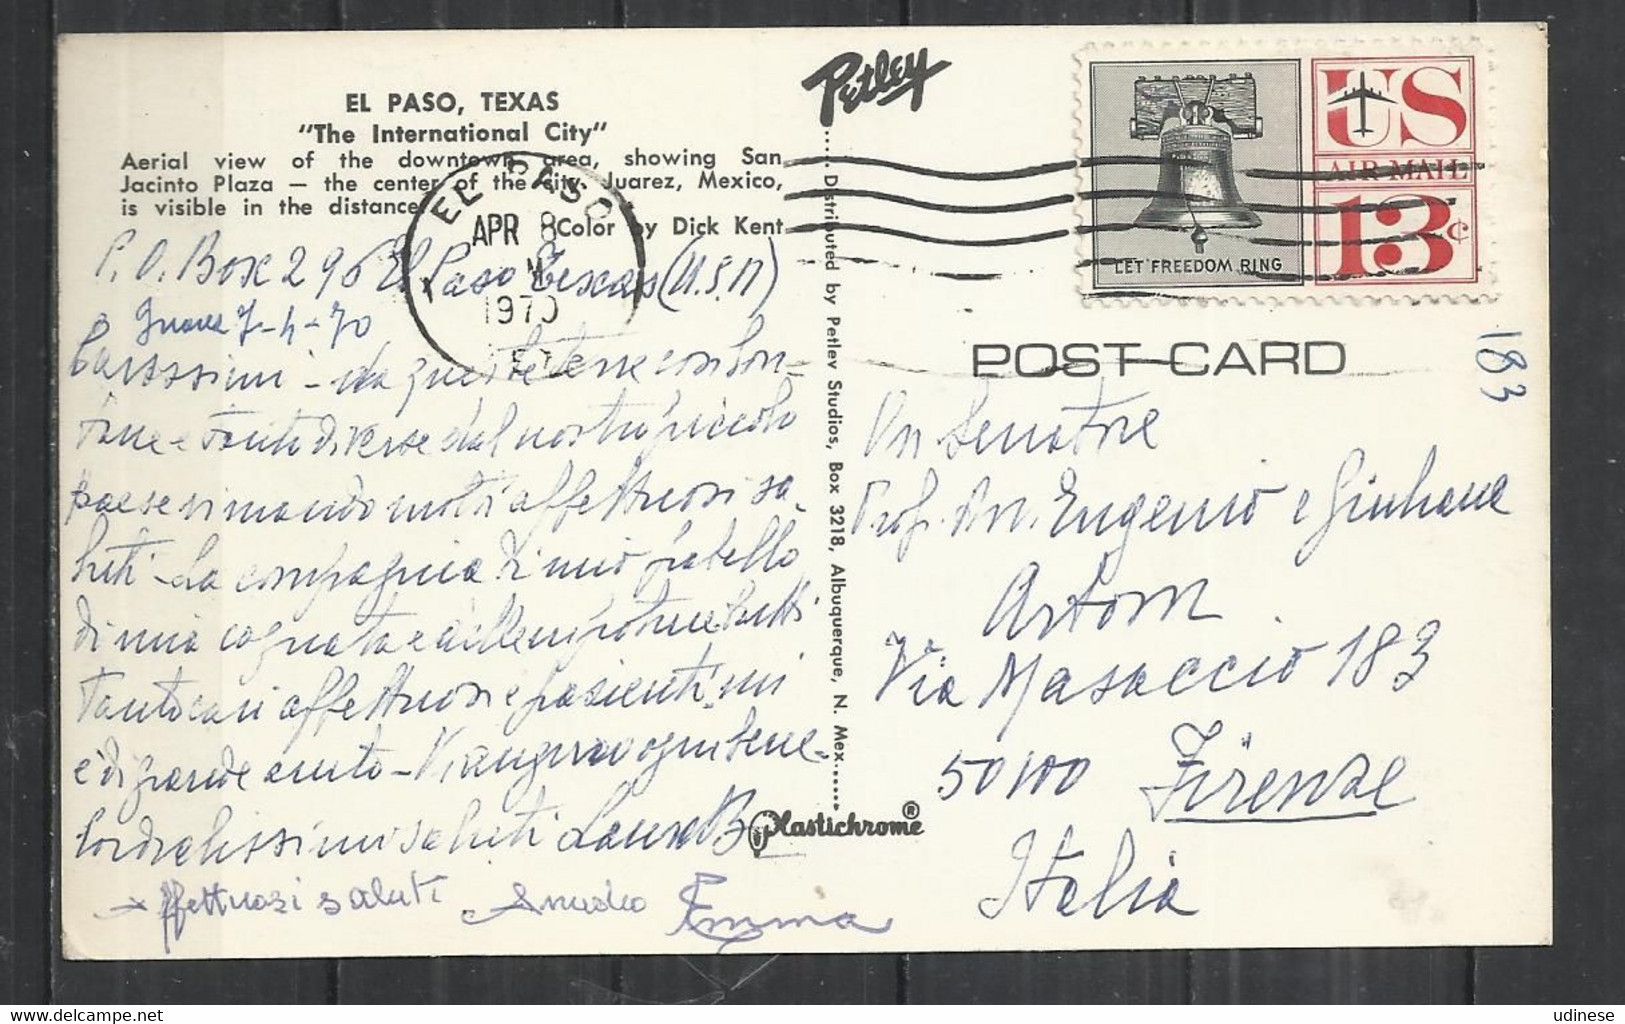 EL PASO, TEXAS
"The International City"
Aerial view of the downtown area, showing San
Jacinto Plaza — the center of the city. Juarez, Mexico,
is visible in the distance.
Color by Dick Kent
Petley
Distributed by Petley Studios, Box 3218, Albuquerque, N. Mex.
Plastichrome®
EL PASO
APR 8
1970
US
AIR MAIL
13¢
LET FREEDOM RING
POST CARD
183
P.O. Box 296 El Paso Texas (U.S.A)
7-4-70
Carissimi - da queste terre così lon-
tane e tanto diverse dal nostro piccolo
paese vi mando molti affettuosi sa-
luti - La compagnia di mio fratello
di mia cognata e dei nipoti tutti
tanto cari affettuosi e pazienti mi
è di grande aiuto - Vi auguro ogni bene -
Cordialissimi saluti Laura B
Affettuosi saluti Emma
On Senatore
Prof. Avv. Eugenio e Giuliana
Artom
Via Masaccio 183
50100 Firenze
Italia
© udinese